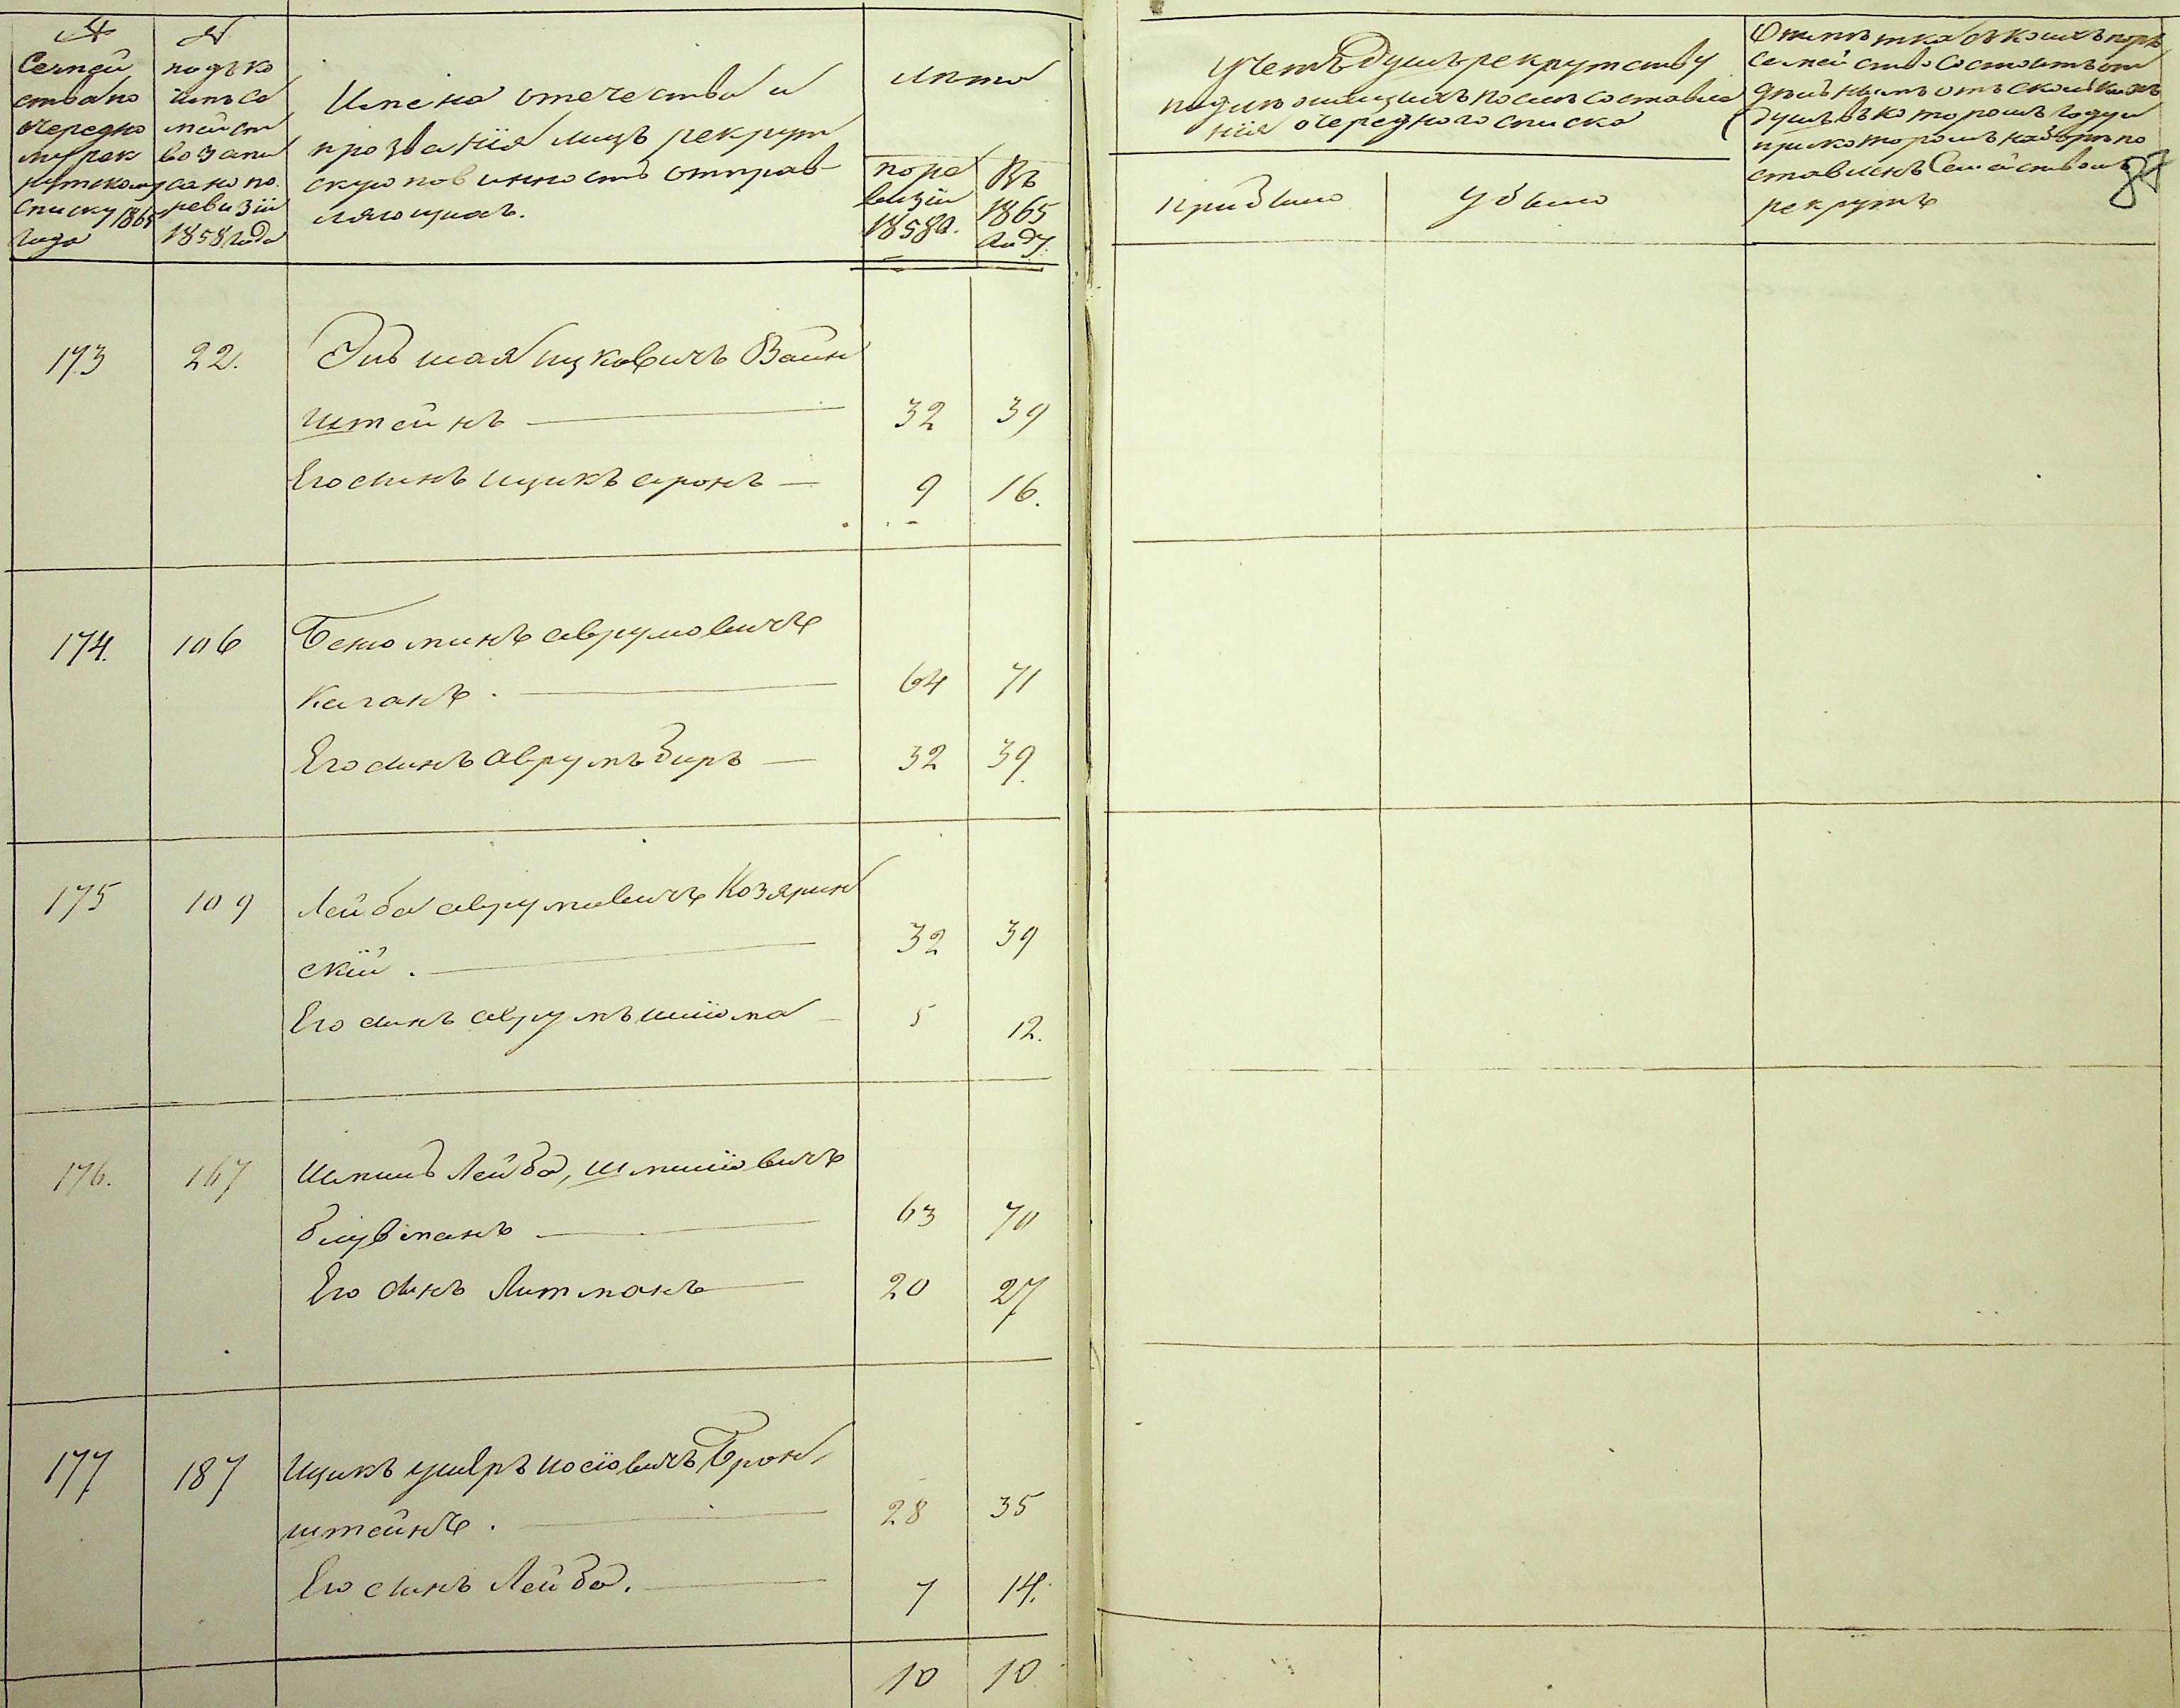 №
Семей
ства по
очередно
му рек
рутскому
списку 1865
года
№
подъ ко
имъ се
мейст
во запи
сано по
ревизіи
1858 года
Имена отечества и
прозванія лицъ рекрут
скую повинность отправ
ляющихъ.
Лѣта
по ре
визіи
1858 г.
Въ
1865
году.
Учетъ душъ рекрутству
подлежащихъ послѣ составле
нія очереднаго списка
прибыло
убыло
Отмѣтка съ коихъ поръ
семейство состоитъ от
дѣльнымъ отъ сколькихъ
душъ въ которомъ году и
при которомъ наборѣ по
ставленъ Семействомъ
рекрутъ
87
173 22. Эльшая Ицковичъ Вайн
штейнъ 32 39
Его сынъ Ицикъ аронъ 9 16.
174. 106 Бенюминъ аврумовичъ
Каганъ. 64 71
Его сынъ аврумъ Беръ 32 39.
175 109 Лейба аврумовичъ Козярин
скій. 32 39
Его сынъ аврумъ шліома 5 12.
176. 167 Шмиль Лейба, шмиліовичъ
блувманъ 63 70
Его сынъ Литманъ 20 27
177 187 Ицикъ ушеръ иосіовичъ Брон,
штейнъ. 28 35
Его сынъ Лейба. 7 14.
10 10